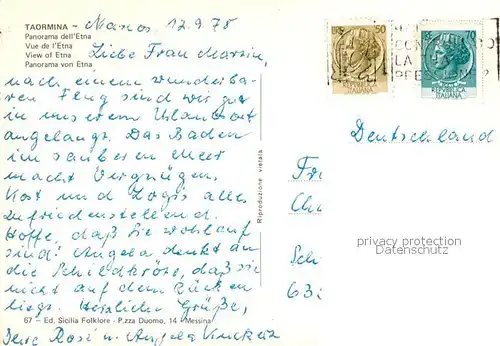 TAORMINA - Naxos, 12.9.78
Panorama dell'Etna
Vue de l'Etna
View of Etna
Panorama von Etna
Liebe Frau Martin,
nach einem wunderba-
ren Flug sind wir gut
in unserem Urlaubsort
angelangt. Das Baden
im sauberen Meer
macht Vergnügen,
Kost und Logis alles
zufriedenstellend.
Hoffe, daß Sie wohlauf
sind! Angela denkt an
die Schildkröte, daß sie
nicht auf dem Rücken
liegt. Herzliche Grüße,
Ihre Rosi u. Angela
67 - Ed. Sicilia Folklore - P.zza Duomo, 14 - Messina
Riproduzione vietata
50
REPUBBLICA
ITALIANA
LA
70
REPUBBLICA
ITALIANA
Deutschland
Fr
Ch
privacy protection
www.ansichtskartenversand.com
Sch
63